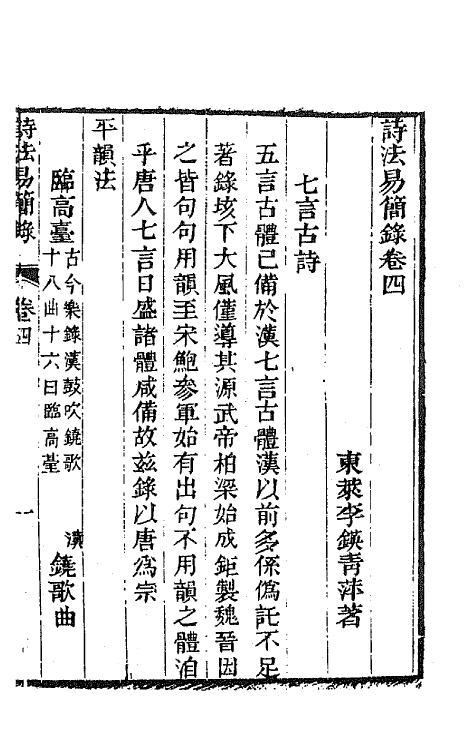 詩法易簡錄卷四
東萊李鍈青萍著
七言古詩
五言古體已備於漢七言古體漢以前多係僞託不足
著錄垓下大風僅導其源武帝柏梁始成鉅製魏晉因
之皆句句用韻至宋鮑參軍始有出句不用韻之體洎
乎唐人七言日盛諸體咸備故兹錄以唐爲宗
平韻法
臨高臺古今樂錄漢鼓吹鐃歌
十八曲十六曰臨高臺
漢鐃歌曲
詩法易簡錄 卷四 一